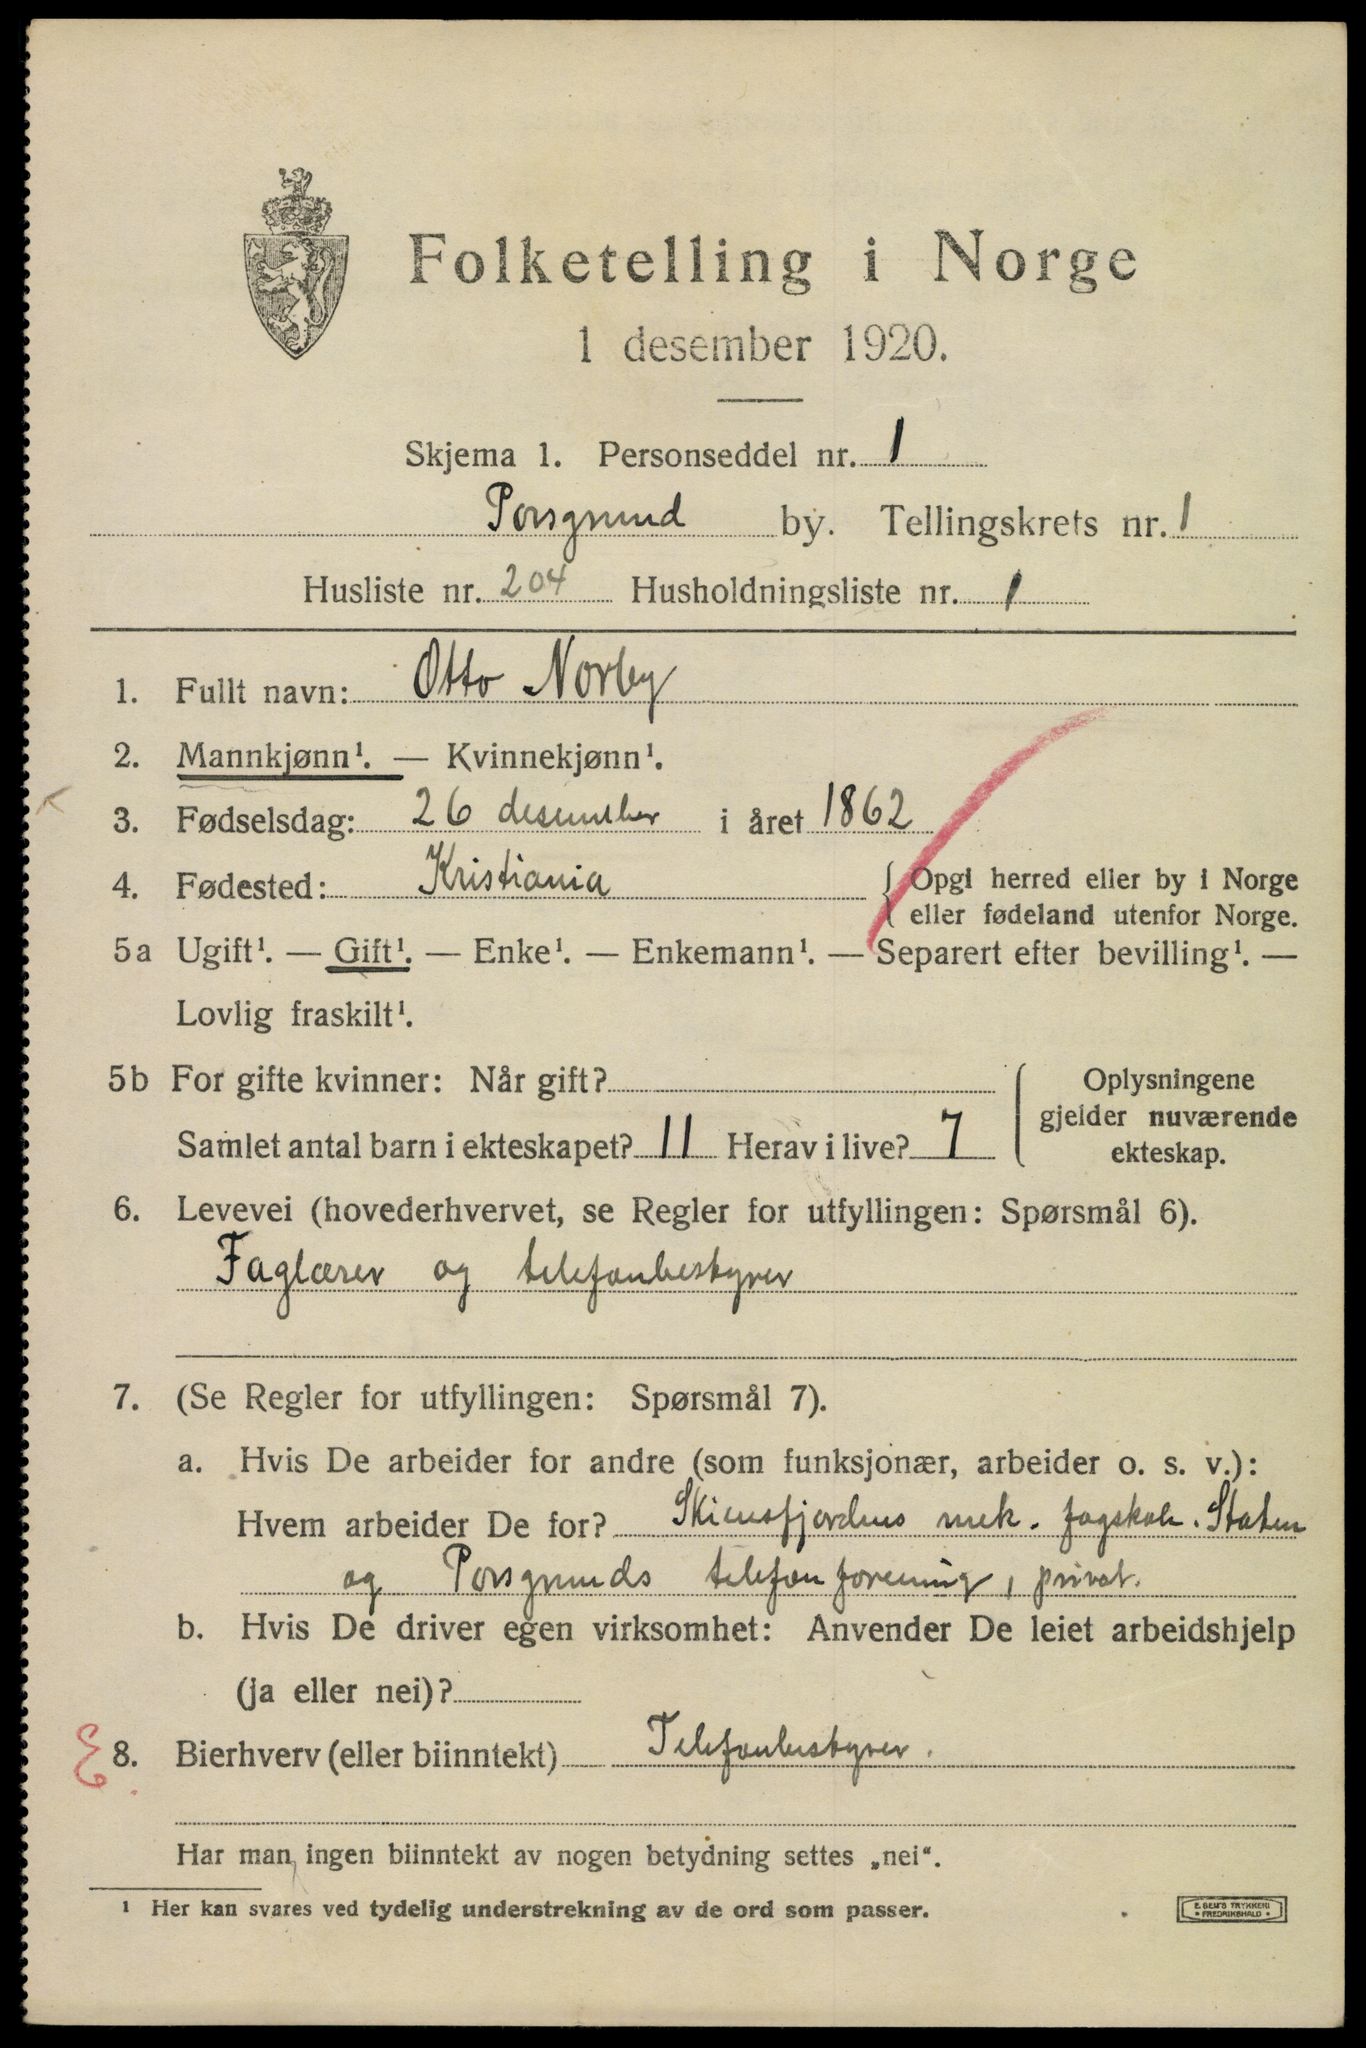 Folketelling i Norge
1 desember 1920.
Skjema 1. Personseddel nr. 1
Porsgrund by. Tellingskrets nr. 1
Husliste nr. 204 Husholdningsliste nr. 1
1. Fullt navn: Otto Norby
2. Mannkjønn¹. — Kvinnekjønn¹.
3. Fødselsdag: 26 desember i året 1862
4. Fødested: Kristiania { Opgi herred eller by i Norge
eller fødeland utenfor Norge.
5a Ugift¹. — Gift¹. — Enke¹. — Enkemann¹. — Separert efter bevilling¹. —
Lovlig fraskilt¹.
5b For gifte kvinner: Når gift?
Samlet antal barn i ekteskapet? 11 Herav i live? 7
Oplysningene
gjelder nuværende
ekteskap.
6. Levevei (hovederhvervet, se Regler for utfyllingen: Spørsmål 6).
Faglærer og telefonbestyrer
7. (Se Regler for utfyllingen: Spørsmål 7).
a. Hvis De arbeider for andre (som funksjonær, arbeider o. s. v.):
Hvem arbeider De for? Skiensfjordens mek. fagskole. Staten
og Porsgrunds telefonforening, privat.
b. Hvis De driver egen virksomhet: Anvender De leiet arbeidshjelp
(ja eller nei)?
8. Bierhverv (eller biinntekt) Telefonbestyrer.
Har man ingen biinntekt av nogen betydning settes „nei“.
¹ Her kan svares ved tydelig understrekning av de ord som passer.
E. SEM'S TRYKKERI
* FREDRIKSHALD *